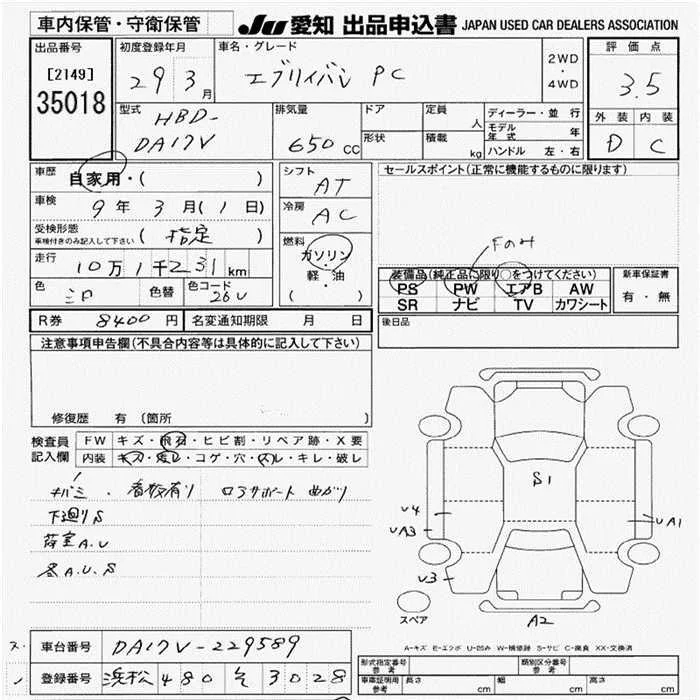 車内保管・守衛保管
JU 愛知 出品申込書 JAPAN USED CAR DEALERS ASSOCIATION
出品番号
[2149]
35018
初度登録年月
29 3月
車名・グレード
エブリイバン PC
2WD
・
4WD
評価点
3.5
外装 内装
D C
型式
HBD-
DA17V
排気量
650 cc
ドア
形状
定員 人
積載 kg
ディーラー・並行
モデル年式 年
ハンドル 左・右
車歴
自家用・( )
車検
9年 3月(1日)
受検形態
車検付きのみ記入して下さい (指定)
走行
10万1千231km
色
シロ
色替
色コード
26U
シフト
AT
冷房
AC
燃料
ガソリン
・
軽・油
( )
セールスポイント(正常に機能するものに限ります)
Fのみ
装備品(純正品に限り○をつけてください)
PS PW エアB AW
SR ナビ TV カワシート
新車保証書
有・無
R券 8400円 名変通知期限 月 日
後日品
注意事項申告欄(不具合内容等は具体的に記入して下さい)
修復歴 有 (箇所
検査員
記入欄
FW キズ・飛石・ヒビ割・リペア跡・X要
内装 キズ・汚レ・コゲ・穴・スレ・キレ・破レ
看板有り ロアサポート 曲がり
下廻りS
荷室A.U
各A.U.S
S1
U4
UA3
U3
UA1
A2
スペア
A-キズ E-エクボ U-凹み W-補修跡 S-サビ C-腐食 XX-交換済
車台番号 DA17V-229589
登録番号 浜松 480 そ 3028
形式指定番号
参考
類別区分番号
参考
車庫証明用
参考
長さ cm
幅 cm
高さ cm